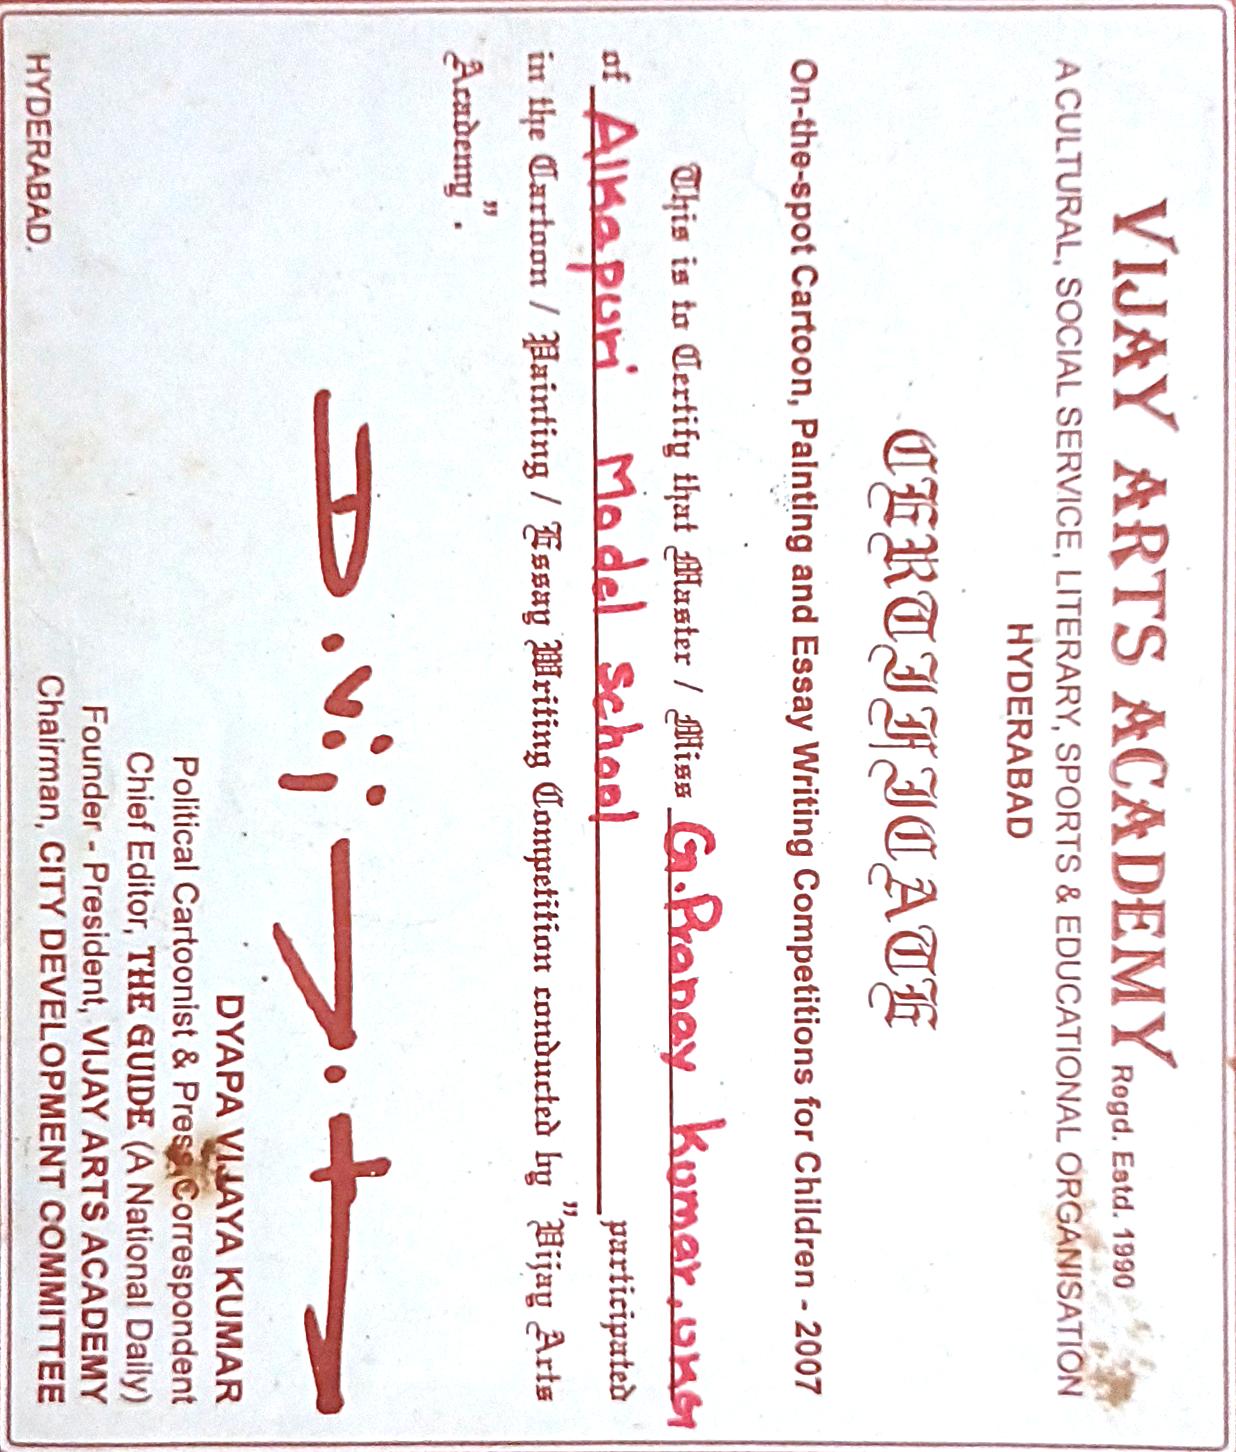 VIJAY ARTS ACADEMY Rogd. Estd. 1990
A CULTURAL, SOCIAL SERVICE, LITERARY, SPORTS & EDUCATIONAL ORGANISATION
HYDERABAD
CERTIFICATE
On-the-spot Cartoon, Painting and Essay Writing Competitions for Children - 2007
This is to Certify that Master / Miss G. Pranay Kumar, UKG
of Alkapuri Model School participated
in the Cartoon / Painting / Essay Writing Competition conducted by "Vijay Arts
Academy".
DYAPA VIJAYA KUMAR
Political Cartoonist & Press Correspondent
Chief Editor, THE GUIDE (A National Daily)
Founder - President, VIJAY ARTS ACADEMY
HYDERABAD. Chairman, CITY DEVELOPMENT COMMITTEE